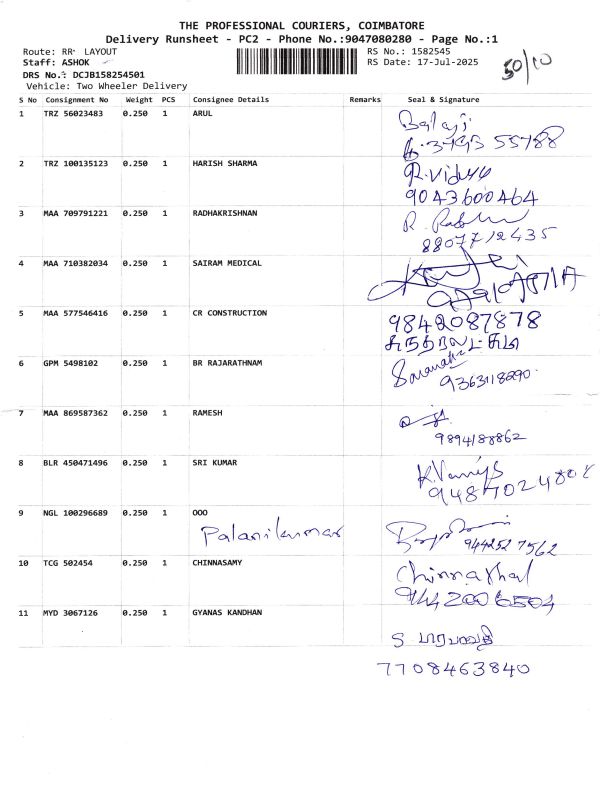 THE PROFESSIONAL COURIERS, COIMBATORE
Delivery Runsheet - PC2 - Phone No.:9047080280 - Page No.:1
Route: RR LAYOUT
RS No.: 1582545
Staff: ASHOK
RS Date: 17-Jul-2025
50/10
DRS No.: DCJB158254501
Vehicle: Two Wheeler Delivery
S No Consignment No Weight PCS Consignee Details Remarks Seal & Signature
1 TRZ 56023483 0.250 1 ARUL
Balaji
55788
2 TRZ 100135123 0.250 1 HARISH SHARMA
R. Vidhya
9043600464
3 MAA 709791221 0.250 1 RADHAKRISHNAN
8807712435
4 MAA 710382034 0.250 1 SAIRAM MEDICAL
5 MAA 577546416 0.250 1 CR CONSTRUCTION
9842087878
6 GPM 5498102 0.250 1 BR RAJARATHNAM
9363118290
7 MAA 869587362 0.250 1 RAMESH
9894188862
8 BLR 450471496 0.250 1 SRI KUMAR
9487024802
9 NGL 100296689 0.250 1 OOO
Palanikumar
9442527562
10 TCG 502454 0.250 1 CHINNASAMY
9442006504
11 MYD 3067126 0.250 1 GYANAS KANDHAN
7708463840